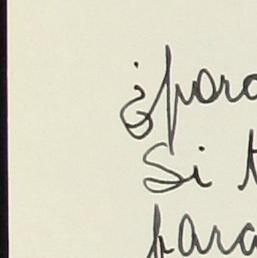 ¿para
Si t
para